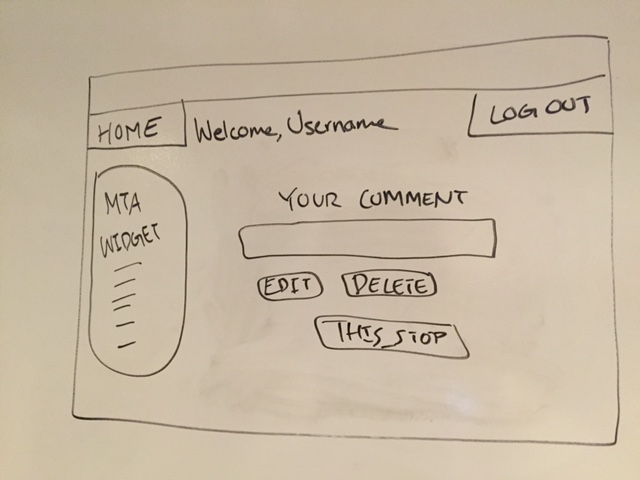 HOME
Welcome, Username
LOG OUT
MTA
WIDGET
YOUR COMMENT
EDIT
DELETE
THIS_STOP